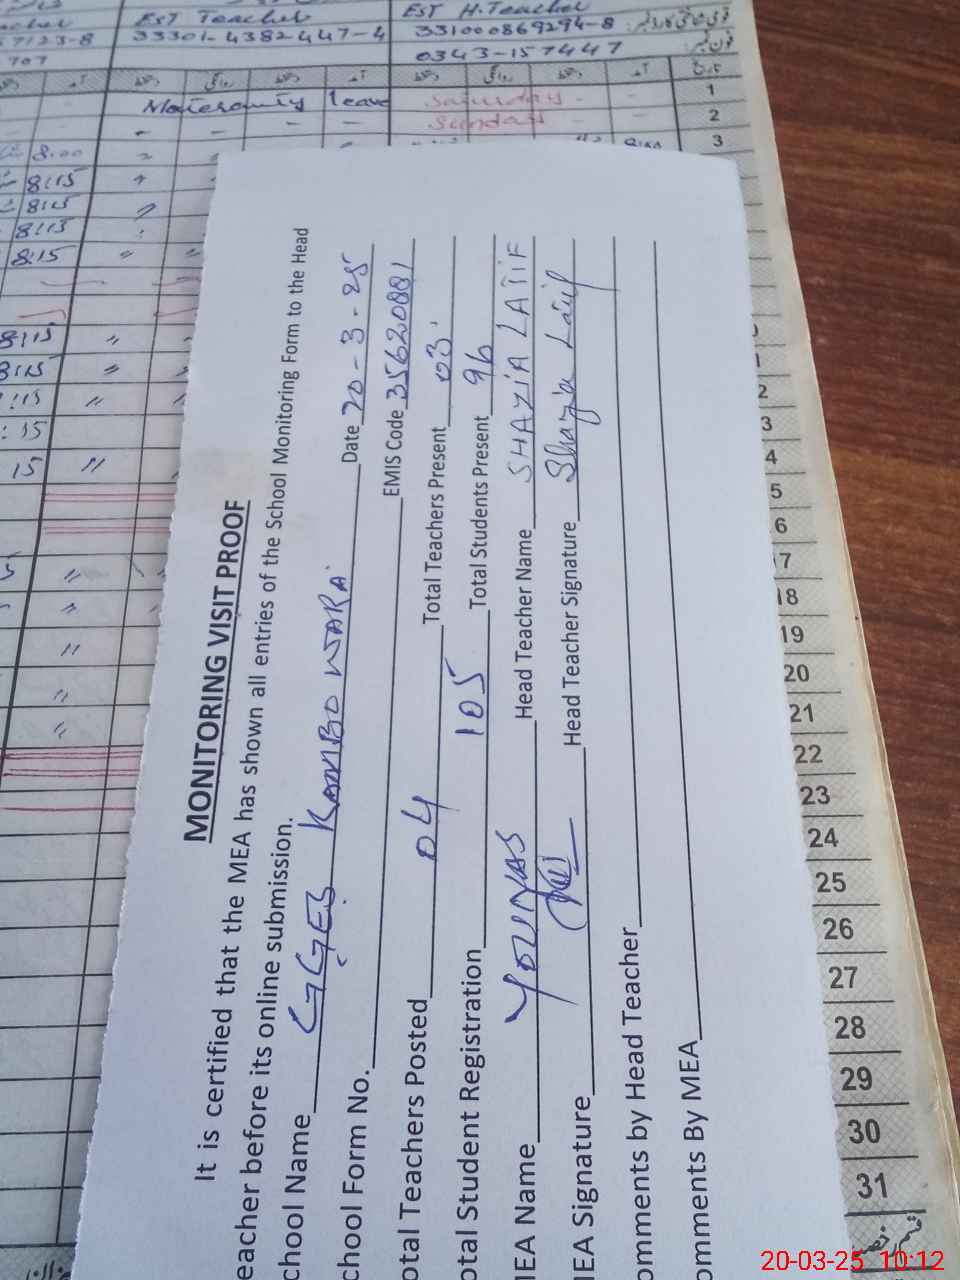 EST Teacher
EST H.Teacher
57123-8
33301-4382447-4
331000869294-8
707
0343-157447
1
leave Saturday
2
Sunday
3
8:00
8:15
8:15
8:15
8:15
8:15
8:15
:15
:15
15
MONITORING VISIT PROOF
It is certified that the MEA has shown all entries of the School Monitoring Form to the Head
eacher before its online submission.
chool Name GGES Date 20-3-25
chool Form No. EMIS Code 35620881
otal Teachers Posted 04 Total Teachers Present 03
otal Student Registration 105 Total Students Present 96
IEA Name YOUNAS Head Teacher Name SHAZIA LATIF
IEA Signature Head Teacher Signature Shazia Latif
omments by Head Teacher
omments By MEA
2
3
4
5
6
17
18
19
20
21
22
23
24
25
26
27
28
29
30
31
20-03-25 10:12